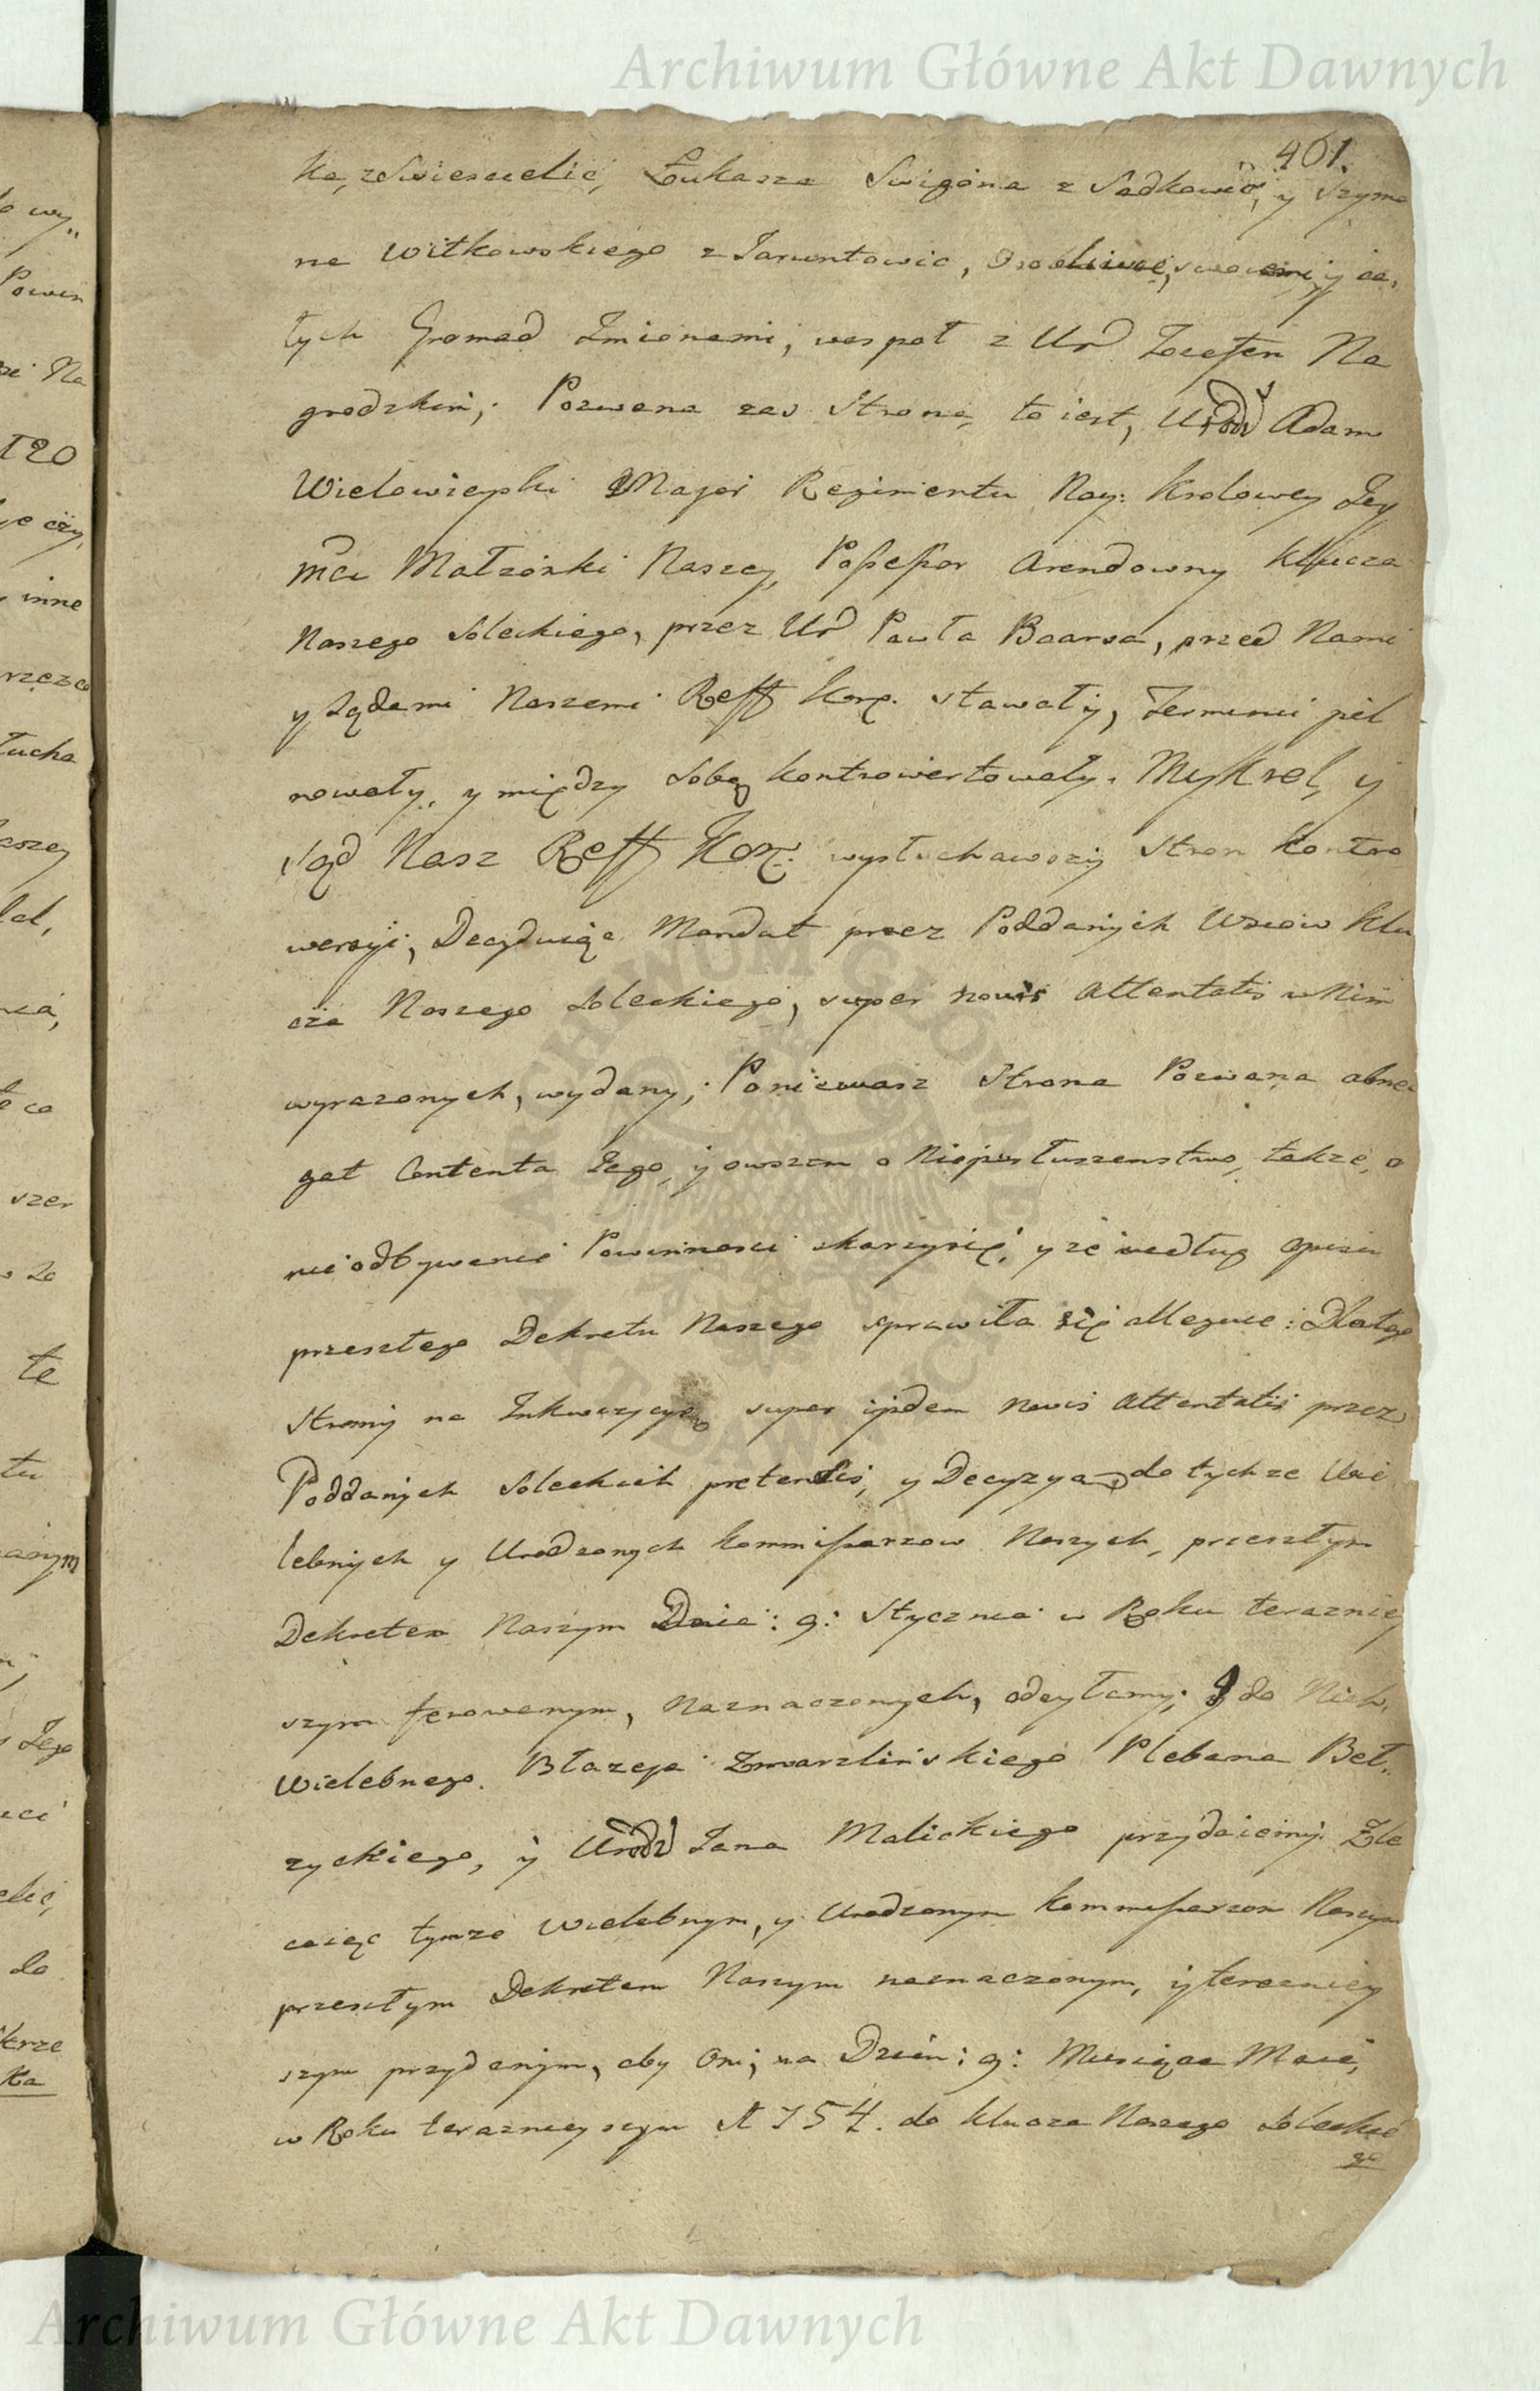 Archiwum Główne Akt Dawnych
461.
ka, z Swiesielic, Łukasza Swigonia z Sadkowic, y Szymo
na Witkowskiego z Jaruntowic, Osobliwie, swoiemi, y ca„
łych Gromad Imionami, wespoł z Ur Jozefem Na
grodzkim; Pozwana zas Strona, to iest, Urodz Adam
Wielowieyski Major Regimentu Nay: Krolowey Jey
mci Małżonki Naszey, Possessor Arendowny Klucza
Naszego Soleckiego, przez Ur Pawła Baarsa, przed Nami
y Sądami Naszemi Reff Kor. stawały, Terminu pil
nowały, y między sobą kontrowertowały. My Krol, y
Sąd Nasz Reff Kor. wysłuchawszy Stron kontro
wersyi, Decyduiąc Mandat przez Poddanych Wsiow Klu
cza Naszego Soleckiego, super novis attentatis w Nim
wyrazonych, wydany; Poniewasz Strona Pozwana abne
gat Contenta Jego, y owszem o Nieposłuszenstwo, takze, o
nieodbywanie Powinnosci skarzy się, y ze według opisu
przeszłego Dekretu Naszego sprawiła się alleguie: Dlatego
Strony na Inkwizycyą super ijsdem novis attentatis przez
Poddanych Soleckich pretensis, y Decyzyą do tychze Wie
lebnych y Urodzonych Kommissarzow Naszych, przeszłym
Dekretem Naszym Dnia: 9: Stycznia w Roku terazniey
szym ferowanym, naznaczonych, odsyłamy; y do Nich,
Wielebnego. Błazeja Zmarzlińskiego Plebana Beł„
zyckiego, y Urodz Jana Malickiego przydaiemy. Zle
caiąc tymze Wielebnym, y Urodzonym Kommissarzom Naszym
przeszłym Dekretem Naszym naznaczonym, y terazniey
szym przydanym, aby Oni, na Dzień: 9: Miesiąca Maia,
w Roku terazniejszym 1754. do Klucza Naszego Soleckie
go
Archiwum Główne Akt Dawnych